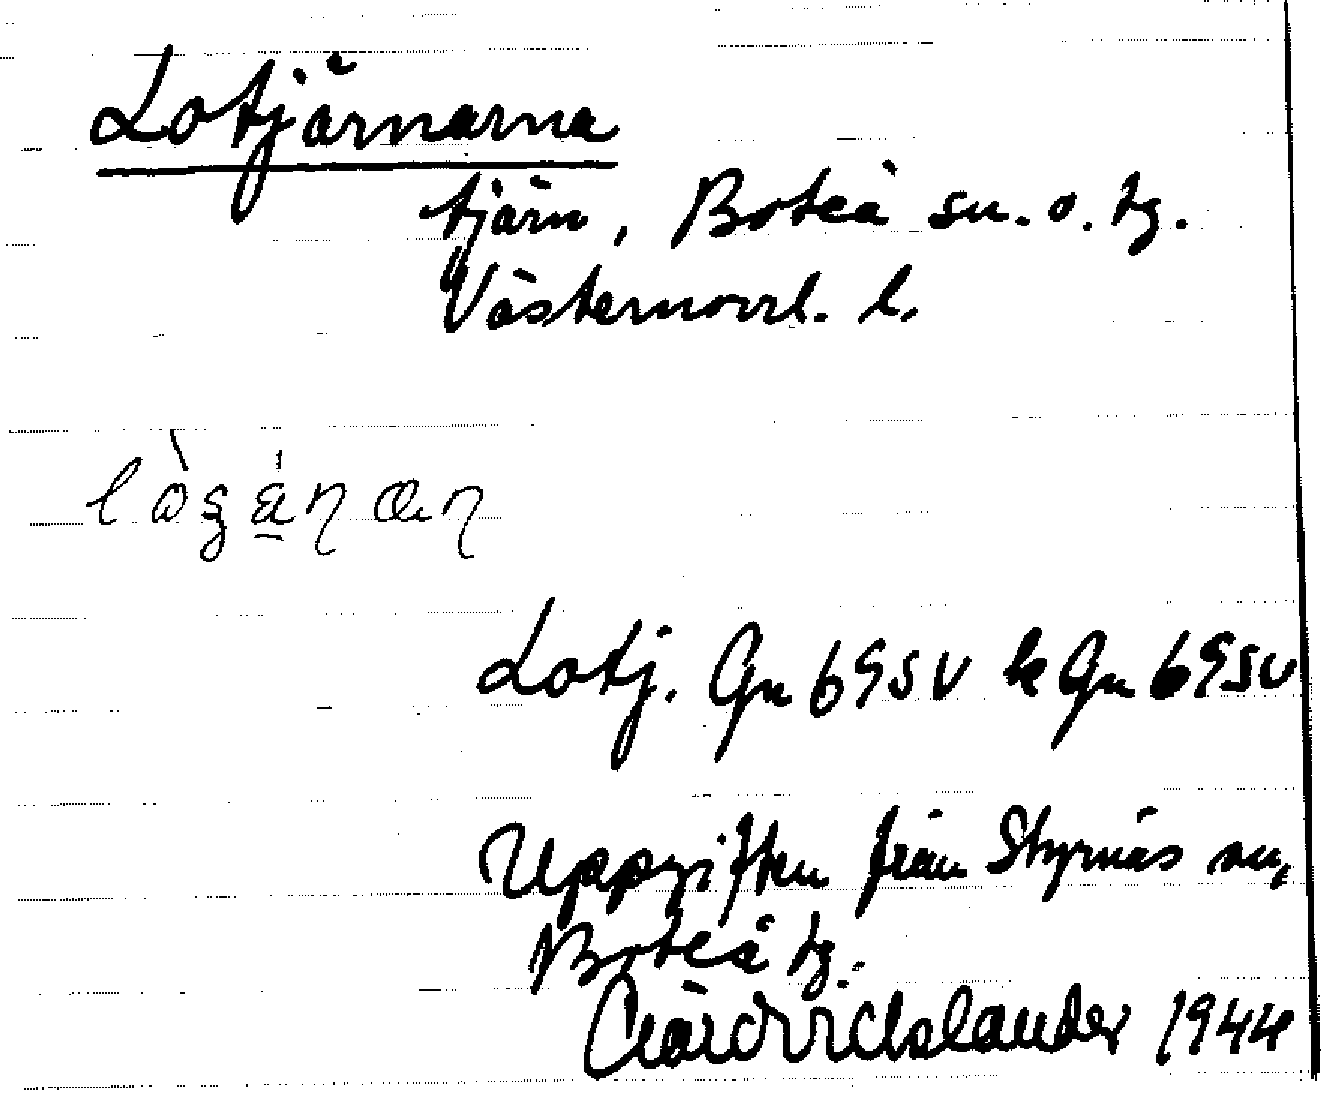 Lotjärnarna
tjärn, Boteå sn. o. tg.
Västernorrl. l.
Lotj. Gn 695V k Gn 695V
Uppgiften från Styrnäs sn,
Boteå tg.
1944